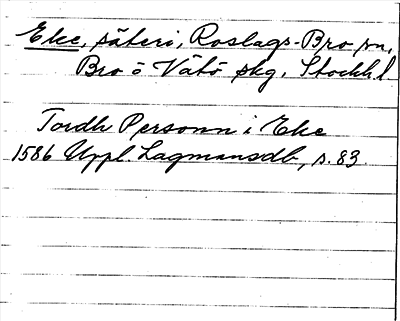 Eke, säteri, Roslags-Bro sn,
Bro o Vätö skg. Stockh. l
Tordh Personn i Eke
1586 Uppl. Lagmansdb, s. 83.